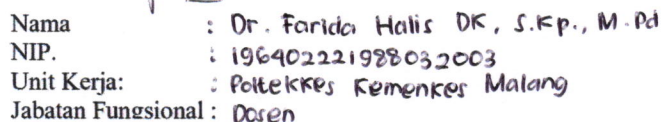 Nama : Dr. Farida Halis DK, S.Kp., M.Pd
NIP. : 196402221988032003
Unit Kerja: : Poltekkes Kemenkes Malang
Jabatan Fungsional : Dosen